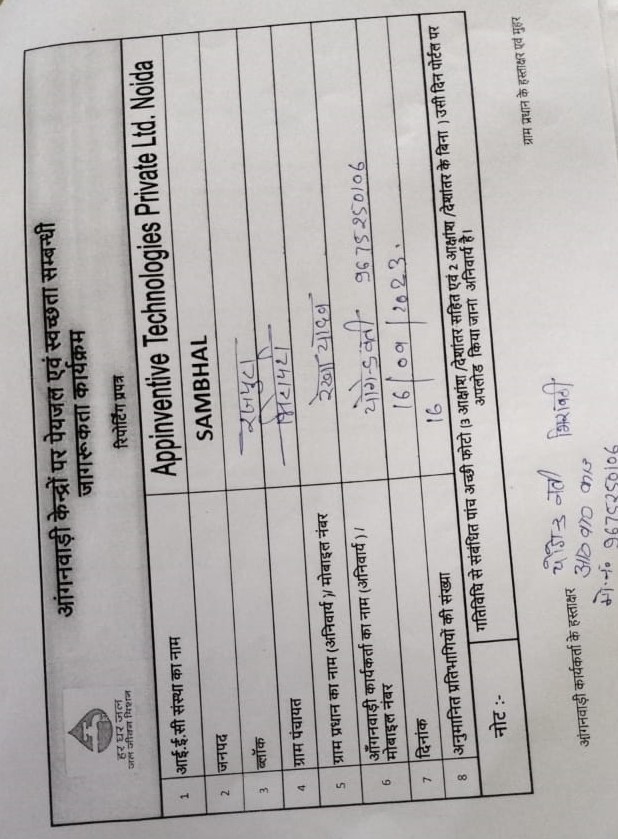 हर घर जल
जल जीवन मिशन
आंगनवाड़ी केन्द्रों पर पेयजल एवं स्वच्छता सम्बन्धी
जागरूकता कार्यक्रम
रिपोर्टिंग प्रपत्र
1 आई.ई.सी संस्था का नाम Appinventive Technologies Private Ltd. Noida
2 जनपद SAMBHAL
3 ब्लॉक रजपुरा
4 ग्राम पंचायत
5 ग्राम प्रधान का नाम (अनिवार्य )/ मोबाइल नंबर रेखा यादव
6 आँगनवाड़ी कार्यकर्ता का नाम (अनिवार्य ) /
मोबाइल नंबर 9675250106
7 दिनांक 16/09/2023.
8 अनुमानित प्रतिभागियों की संख्या 16
नोट :- गतिविधि से संबंधित पांच अच्छी फोटो (3 आक्षांश /देशांतर सहित एवं 2 आक्षांश /देशांतर के बिना ) उसी दिन पोर्टल पर
अपलोड किया जाना अनिवार्य है।
ग्राम प्रधान के हस्ताक्षर एवं मुहर
आंगनवाड़ी कार्यकर्ता के हस्ताक्षर
मो. नं० 9675250106